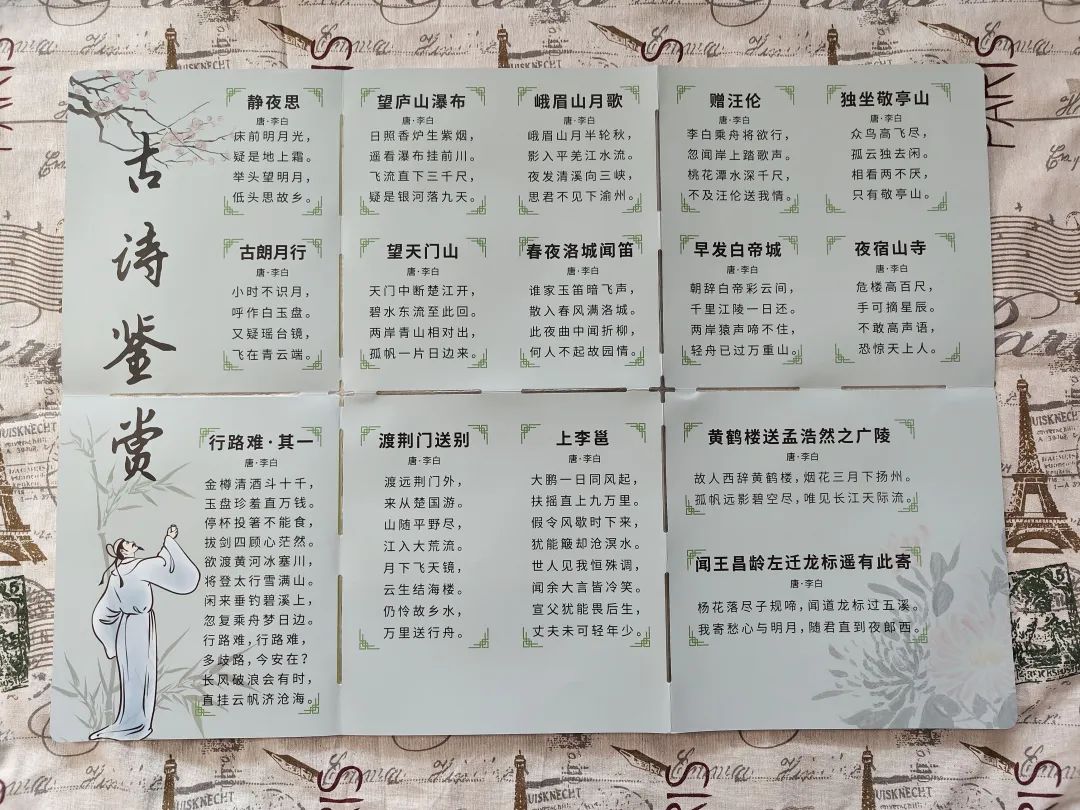 古诗鉴赏
静夜思
唐·李白
床前明月光，
疑是地上霜。
举头望明月，
低头思故乡。
望庐山瀑布
唐·李白
日照香炉生紫烟，
遥看瀑布挂前川。
飞流直下三千尺，
疑是银河落九天。
峨眉山月歌
唐·李白
峨眉山月半轮秋，
影入平羌江水流。
夜发清溪向三峡，
思君不见下渝州。
赠汪伦
唐·李白
李白乘舟将欲行，
忽闻岸上踏歌声。
桃花潭水深千尺，
不及汪伦送我情。
独坐敬亭山
唐·李白
众鸟高飞尽，
孤云独去闲。
相看两不厌，
只有敬亭山。
古朗月行
唐·李白
小时不识月，
呼作白玉盘。
又疑瑶台镜，
飞在青云端。
望天门山
唐·李白
天门中断楚江开，
碧水东流至此回。
两岸青山相对出，
孤帆一片日边来。
春夜洛城闻笛
唐·李白
谁家玉笛暗飞声，
散入春风满洛城。
此夜曲中闻折柳，
何人不起故园情。
早发白帝城
唐·李白
朝辞白帝彩云间，
千里江陵一日还。
两岸猿声啼不住，
轻舟已过万重山。
夜宿山寺
唐·李白
危楼高百尺，
手可摘星辰。
不敢高声语，
恐惊天上人。
行路难·其一
唐·李白
金樽清酒斗十千，
玉盘珍羞直万钱。
停杯投箸不能食，
拔剑四顾心茫然。
欲渡黄河冰塞川，
将登太行雪满山。
闲来垂钓碧溪上，
忽复乘舟梦日边。
行路难，行路难，
多歧路，今安在？
长风破浪会有时，
直挂云帆济沧海。
渡荆门送别
唐·李白
渡远荆门外，
来从楚国游。
山随平野尽，
江入大荒流。
月下飞天镜，
云生结海楼。
仍怜故乡水，
万里送行舟。
上李邕
唐·李白
大鹏一日同风起，
扶摇直上九万里。
假令风歇时下来，
犹能簸却沧溟水。
世人见我恒殊调，
闻余大言皆冷笑。
宣父犹能畏后生，
丈夫未可轻年少。
黄鹤楼送孟浩然之广陵
唐·李白
故人西辞黄鹤楼，烟花三月下扬州。
孤帆远影碧空尽，唯见长江天际流。
闻王昌龄左迁龙标遥有此寄
唐·李白
杨花落尽子规啼，闻道龙标过五溪。
我寄愁心与明月，随君直到夜郎西。